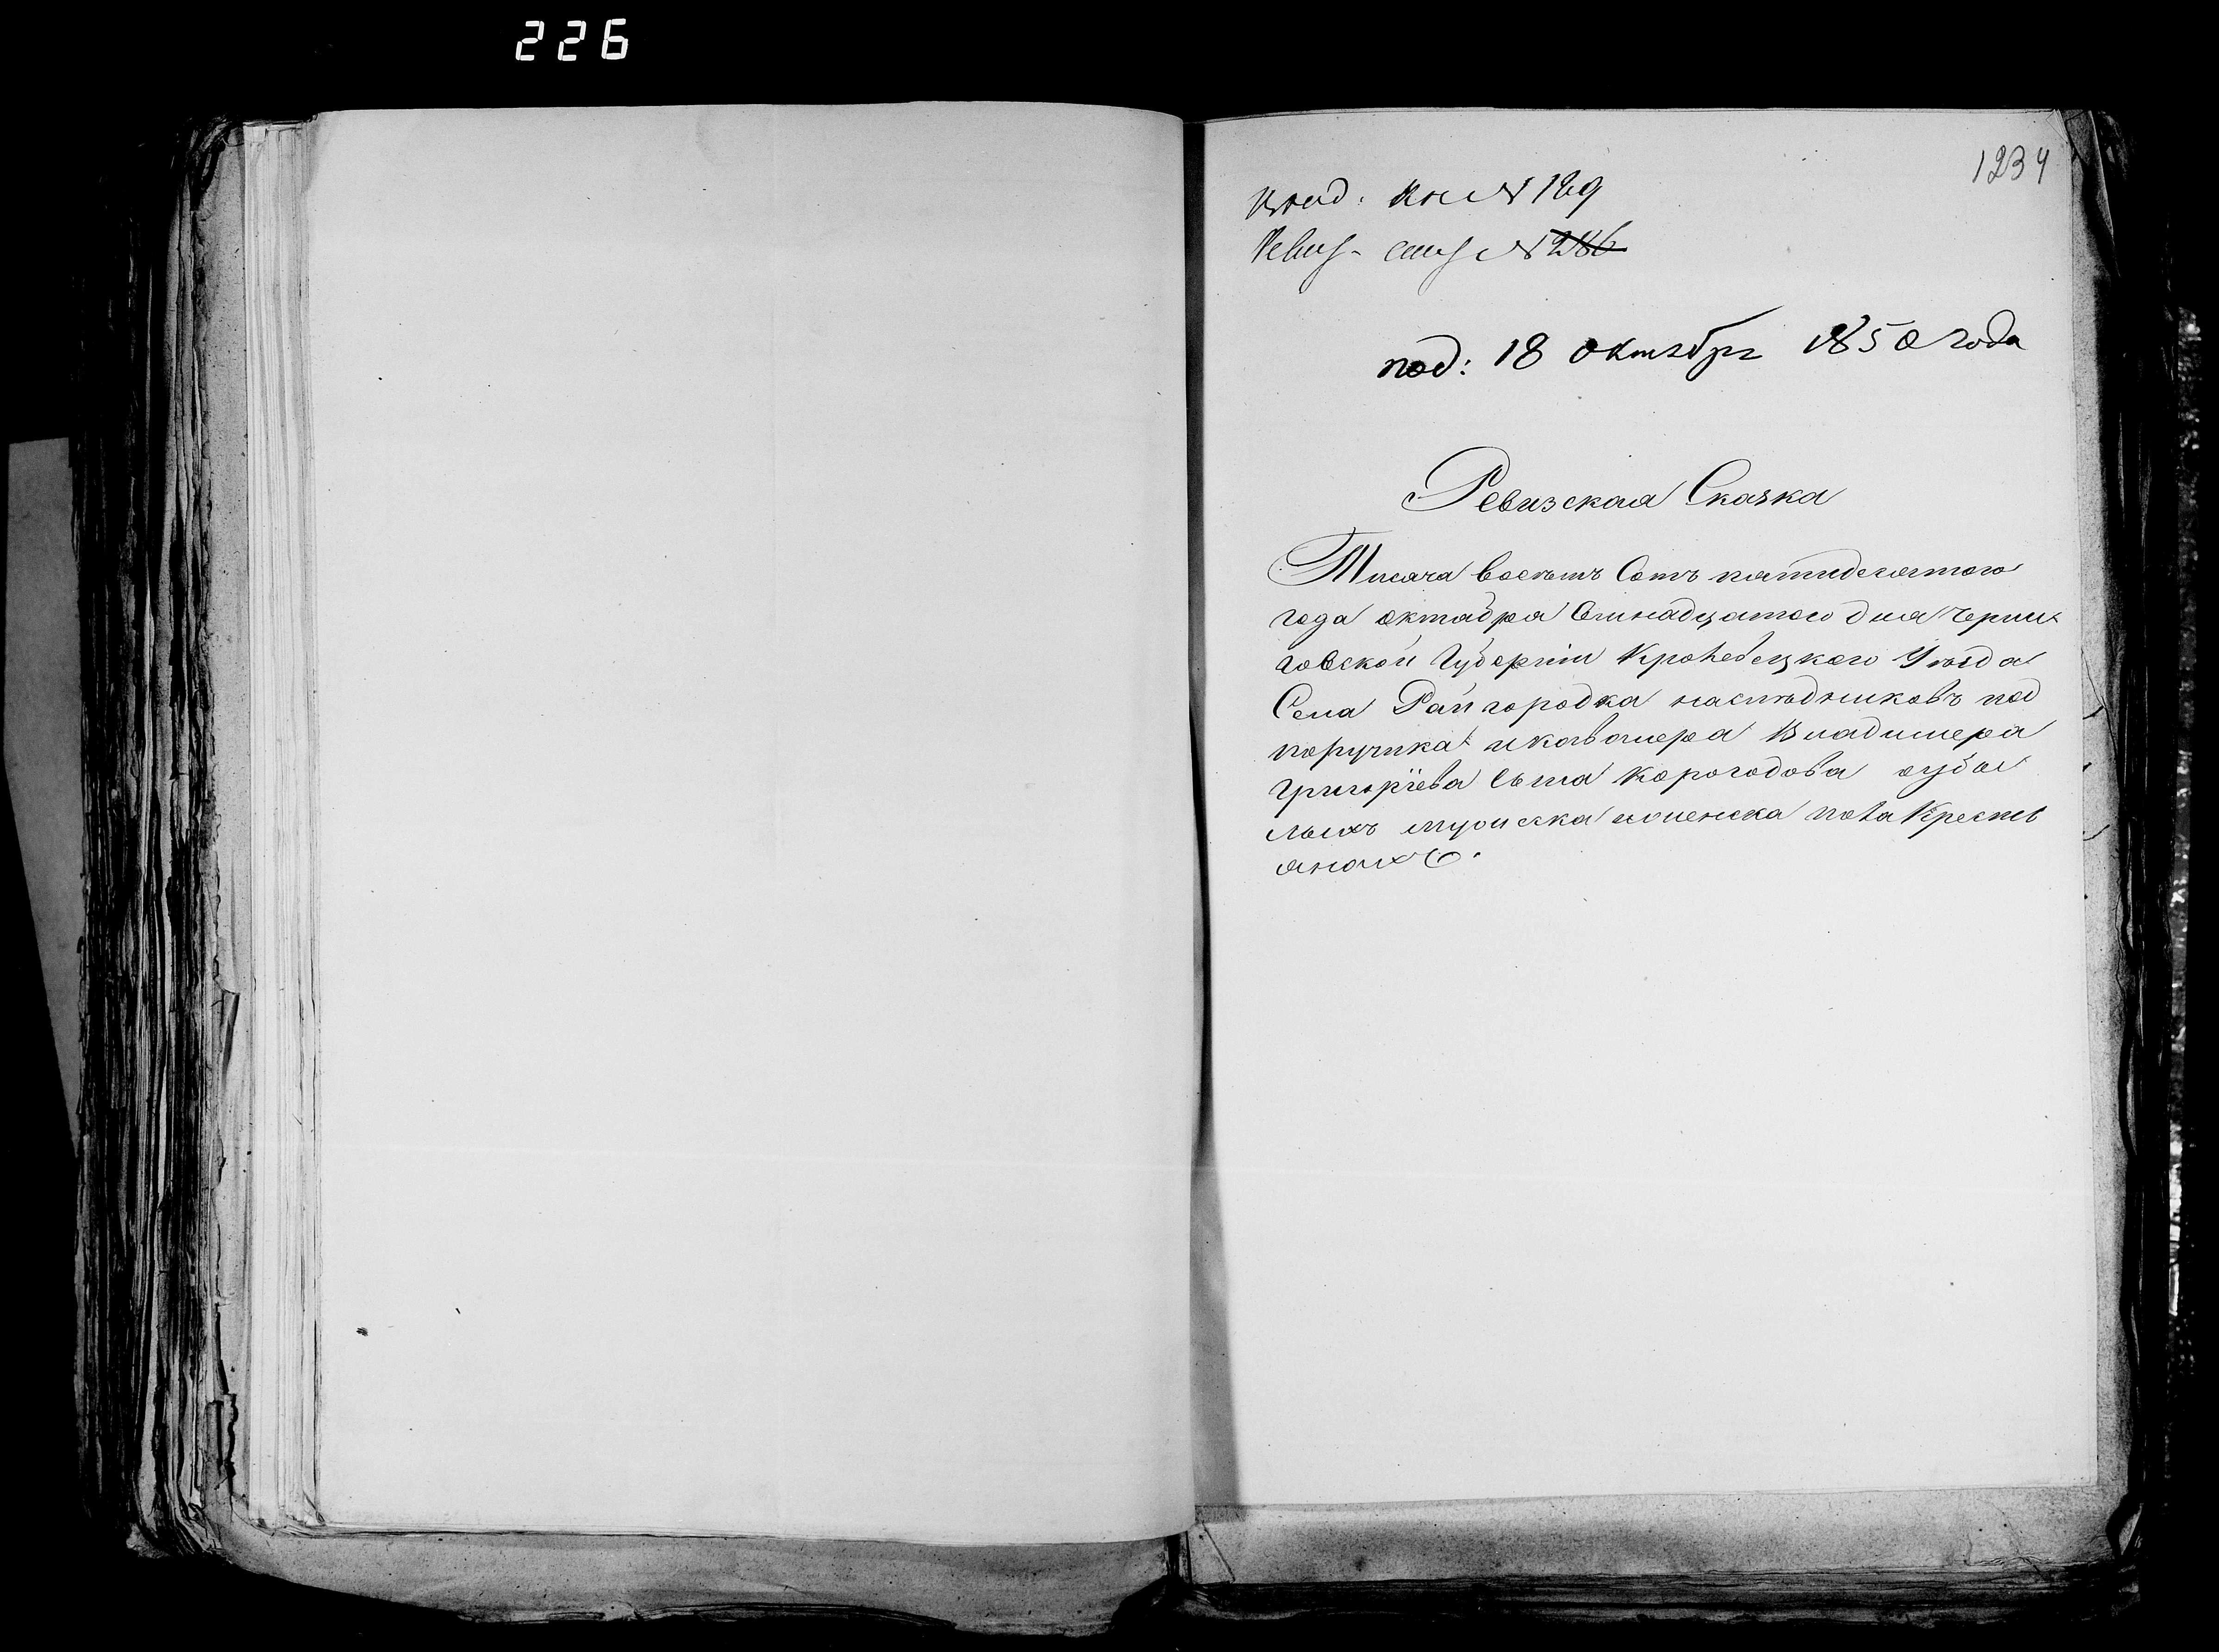 226
1234
Кн № 189
№ 286
под: 18 октября 1850 года
Ревизская Сказка
Тисяча восемъ Сотъ пятидесятого
года октабра Осинадцатого дня Черни
говской Губернии Кролевецкого Уезда
Села Райгородка наследниковъ под
поручика и кавалера Владимера
Григорїева Сына Корогодова о
мужеска и женска пола Кресть
анахъ.